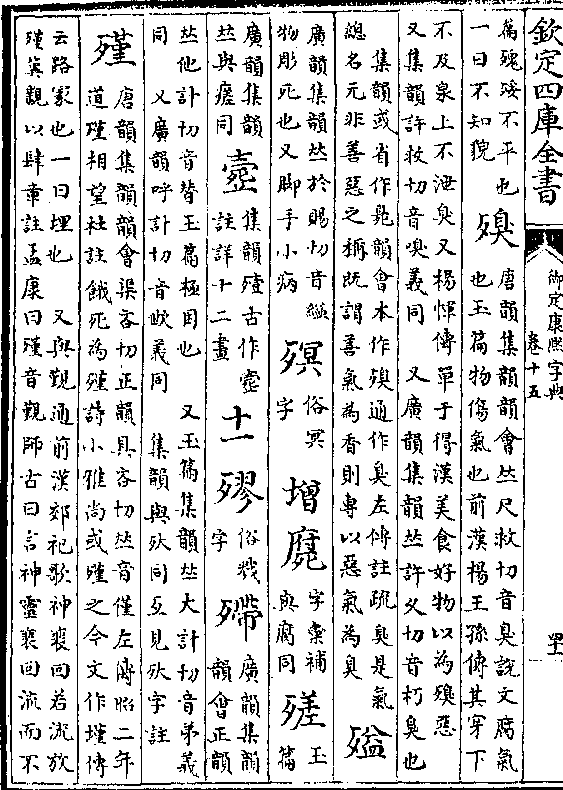 欽定四庫全書
御定康熙字典
卷十五
四十二
為殟殙不平也
一曰不知貌
殠
唐韻集韻韻會𠀤尺救切音臭說文腐氣
也玉篇物傷氣也前漢楊王孫傳其穿下
不及泉上不泄臭又楊惲傳單于得漢美食好物以為殠惡
又集韻許救切音嗅義同　又廣韻集韻𠀤許久切音朽臭也
集韻或省作㱙韻會本作殠通作臭左傳註疏臭是氣
總名元非善惡之稱既謂善氣為香則專以惡氣為臭
㱲
廣韻集韻𠀤於賜切音縊
物彫死也又腳手小病
㱱
俗冥
字
增
䕢
字彙補
與腐同
㱴
玉
篇
廣韻集韻
𠀤與瘥同
㱳
集韻殪古作㱳
註詳十二畫
十一
㱶
俗戮
字
殢
廣韻集韻
韻會正韻
𠀤他計切音替玉篇極困也　又玉篇集韻𠀤大計切音弟義
同　又廣韻呼計切音欪義同　集韻與㱾同互見㱾字註
殣
唐韻集韻韻會渠吝切正韻具吝切𠀤音僅左傳昭二年
道殣相望杜註餓死為殣詩小雅尚或殣之今文作墐傳
云路冢也一曰埋也　又與覲通前漢郊祀歌神裴回若流放
殣冀親以肆章註孟康曰殣音覲師古曰言神靈裴回流而不